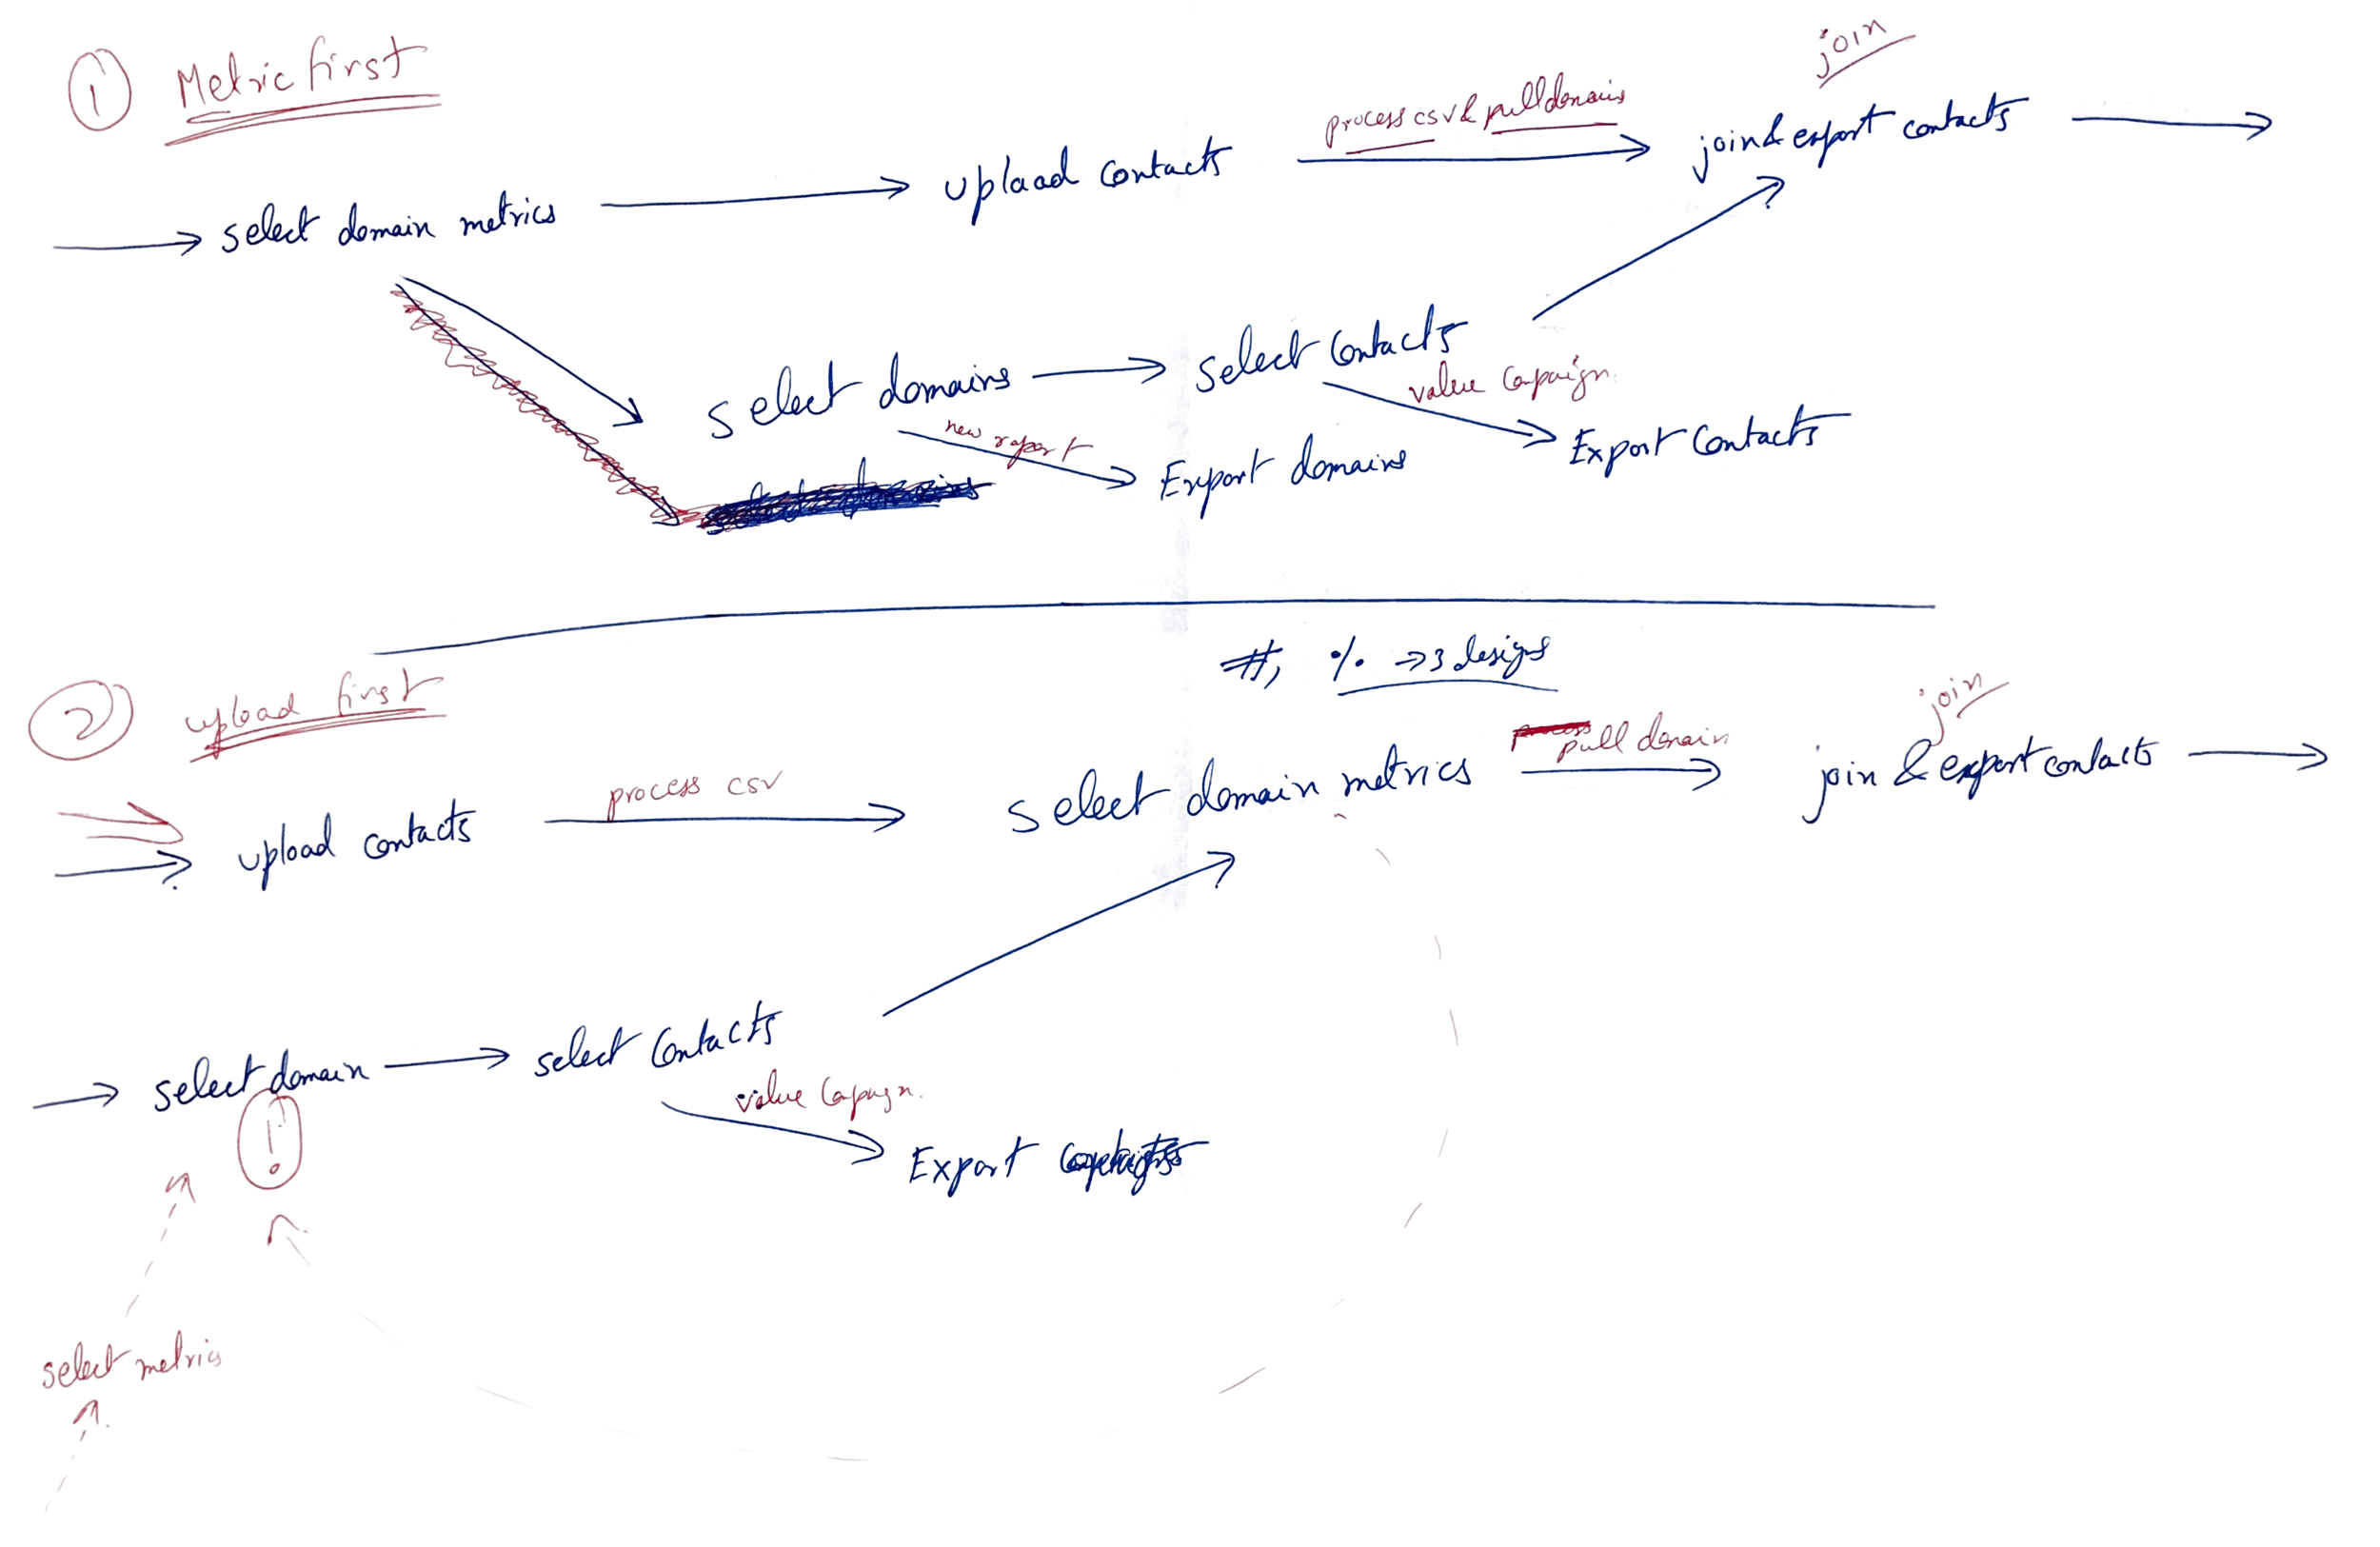 1 Metric first
join
process csv & pull domains
upload contacts
join & export contacts
select domain metrics
select contacts
value campaign
select domains
new report
Export contacts
Export domains
#, % → 3 designs
2 upload first
join
pull domain
process csv
select domain metrics
join & export contacts
upload contacts
select domain
select contacts
value
!
Export
select metrics